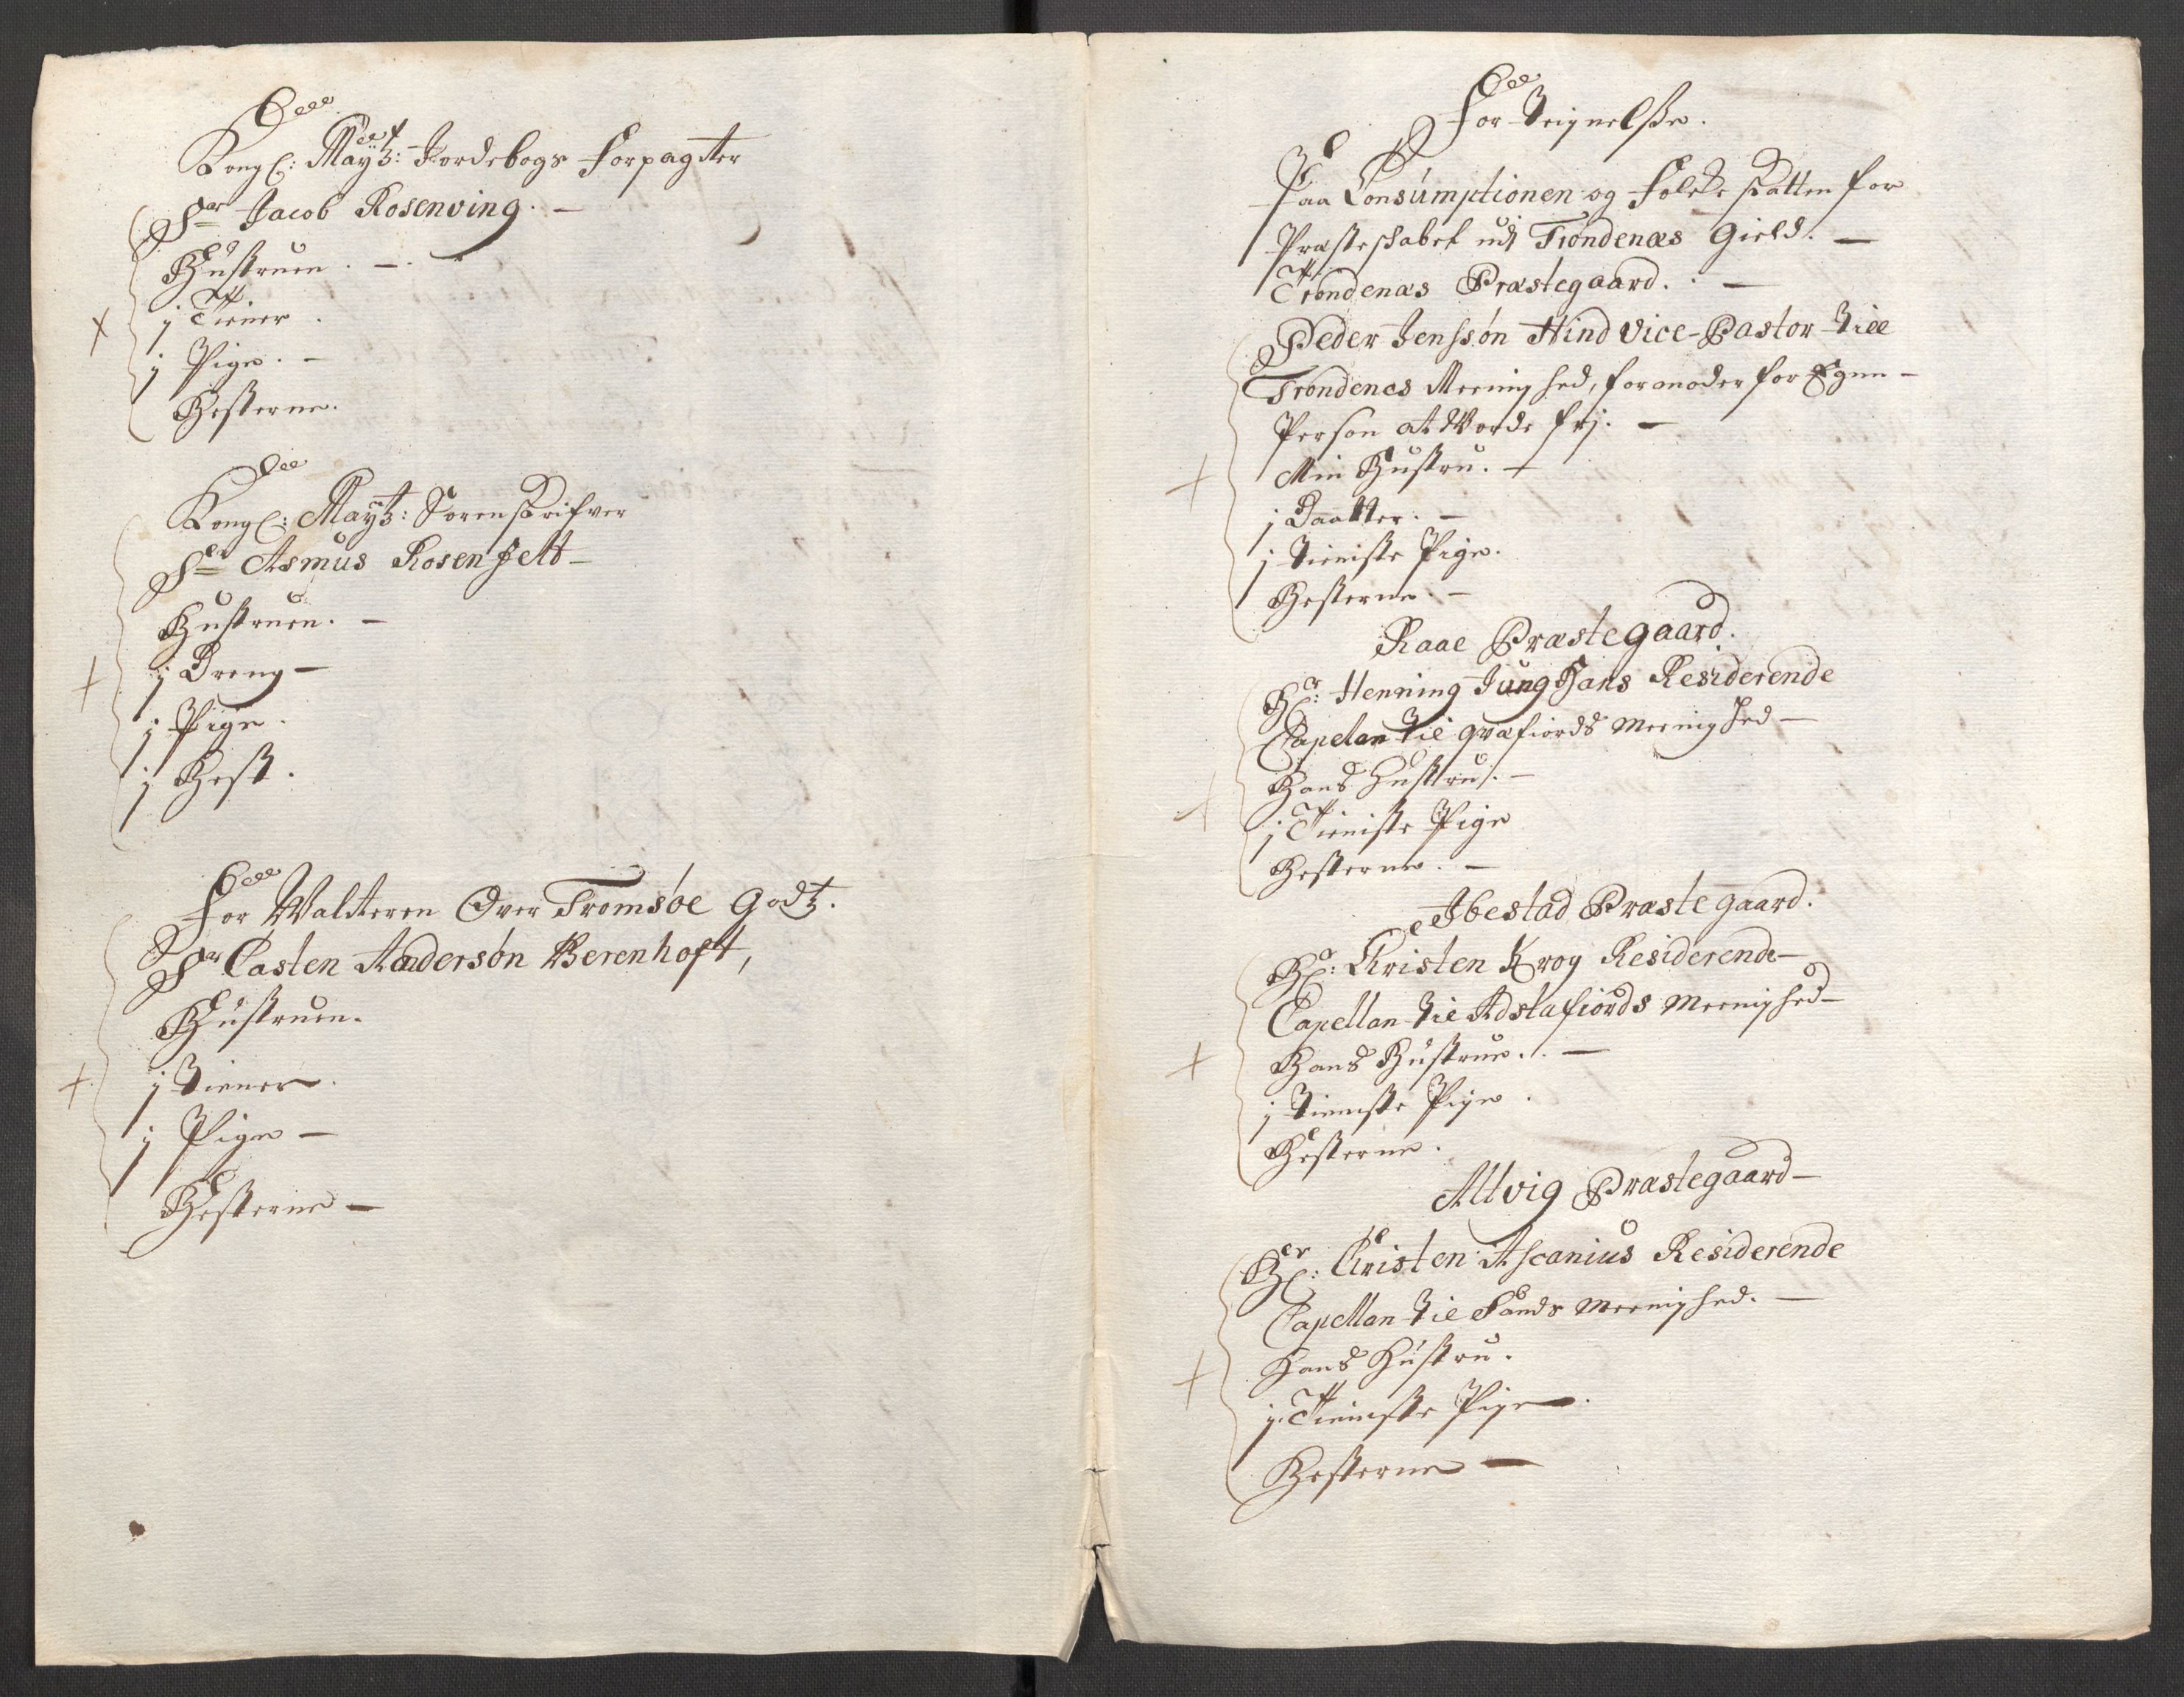 Kongl: Maytz: Jordebogs Forpagter
Sr Jacob Rosenving. –
Hustruen. –
j Tiener.
j Pige. –
Hesterne.
Kongl: Maytz: Sorenskrifver
Sr Asmus Rosenfelt –
Hustruen. –
j Dreng –
j Pige.
j Hest.
Forvalteren Over Tromsøe Godtz.
Sr Casten Andersøn Berenhoft,
Hustruen.
j Tiener.
j Pige –
Hesterne –
Forteignelsse.
Paa Consumptionen og Folcke skatten for
Præsteskabet udj Trondenæs Gield. –
Trondenæs Præstegaard. –
Peder Jenssøn Hind Vice-Pastor till
Trondenes Meenighed, formoder for Egen –
Person at Worde frj. –
Min Hustru. –
j Daatter. –
j Tieniste Pige.
Hesterne. –
Raae Præstegaard.
Hr: Henning Junghans Residerende
Capelan til Qvæfiords Meenighed –
Hans Hustru. –
j Tieniste Pige
Hesterne. –
Ibestad Præstegaard.
Hr: Christen Krog Residerende –
Capellan til Adstafiords Meenighed –
Hans Hustrue. –
j Tieniste Pige.
Hesterne.
Altvig Præstegaard –
Hr: Christen Ascanius Residerende
Capellan til Sands Meenighed. –
Hans Hustru.
j Tieniste Pige.
Hesterne –